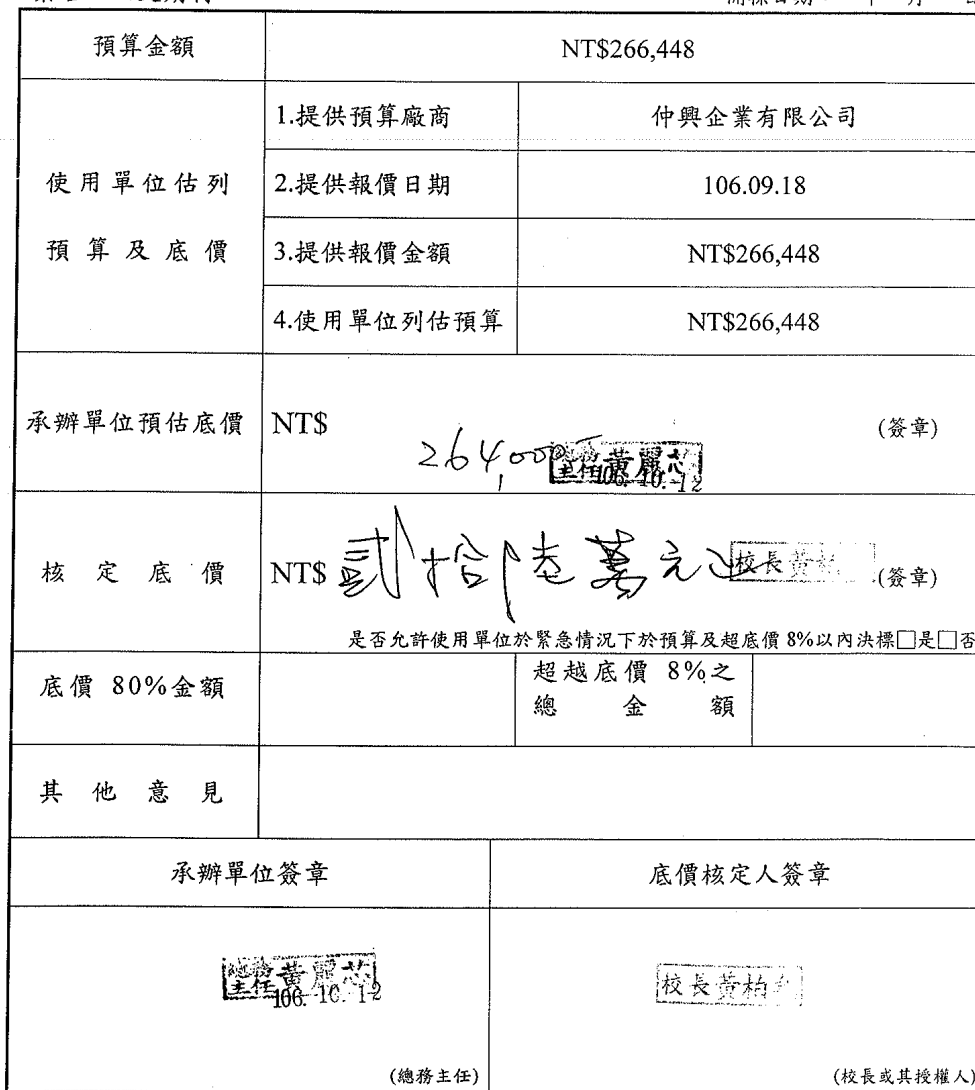 預算金額 NT$266,448
使用單位估列
預算及底價
1.提供預算廠商 仲興企業有限公司
2.提供報價日期 106.09.18
3.提供報價金額 NT$266,448
4.使用單位列估預算 NT$266,448
承辦單位預估底價 NT$ 264,000 (簽章)
主任黃麗芯
106.10.12
核定底價 NT$ 貳拾陸萬元 校長黃柏 (簽章)
是否允許使用單位於緊急情況下於預算及超底價 8%以內決標□是□否
底價 80%金額
超越底價 8%之
總金額
其他意見
承辦單位簽章 底價核定人簽章
總務
主任黃麗芯
106.10.12
校長黃柏
(總務主任) (校長或其授權人)